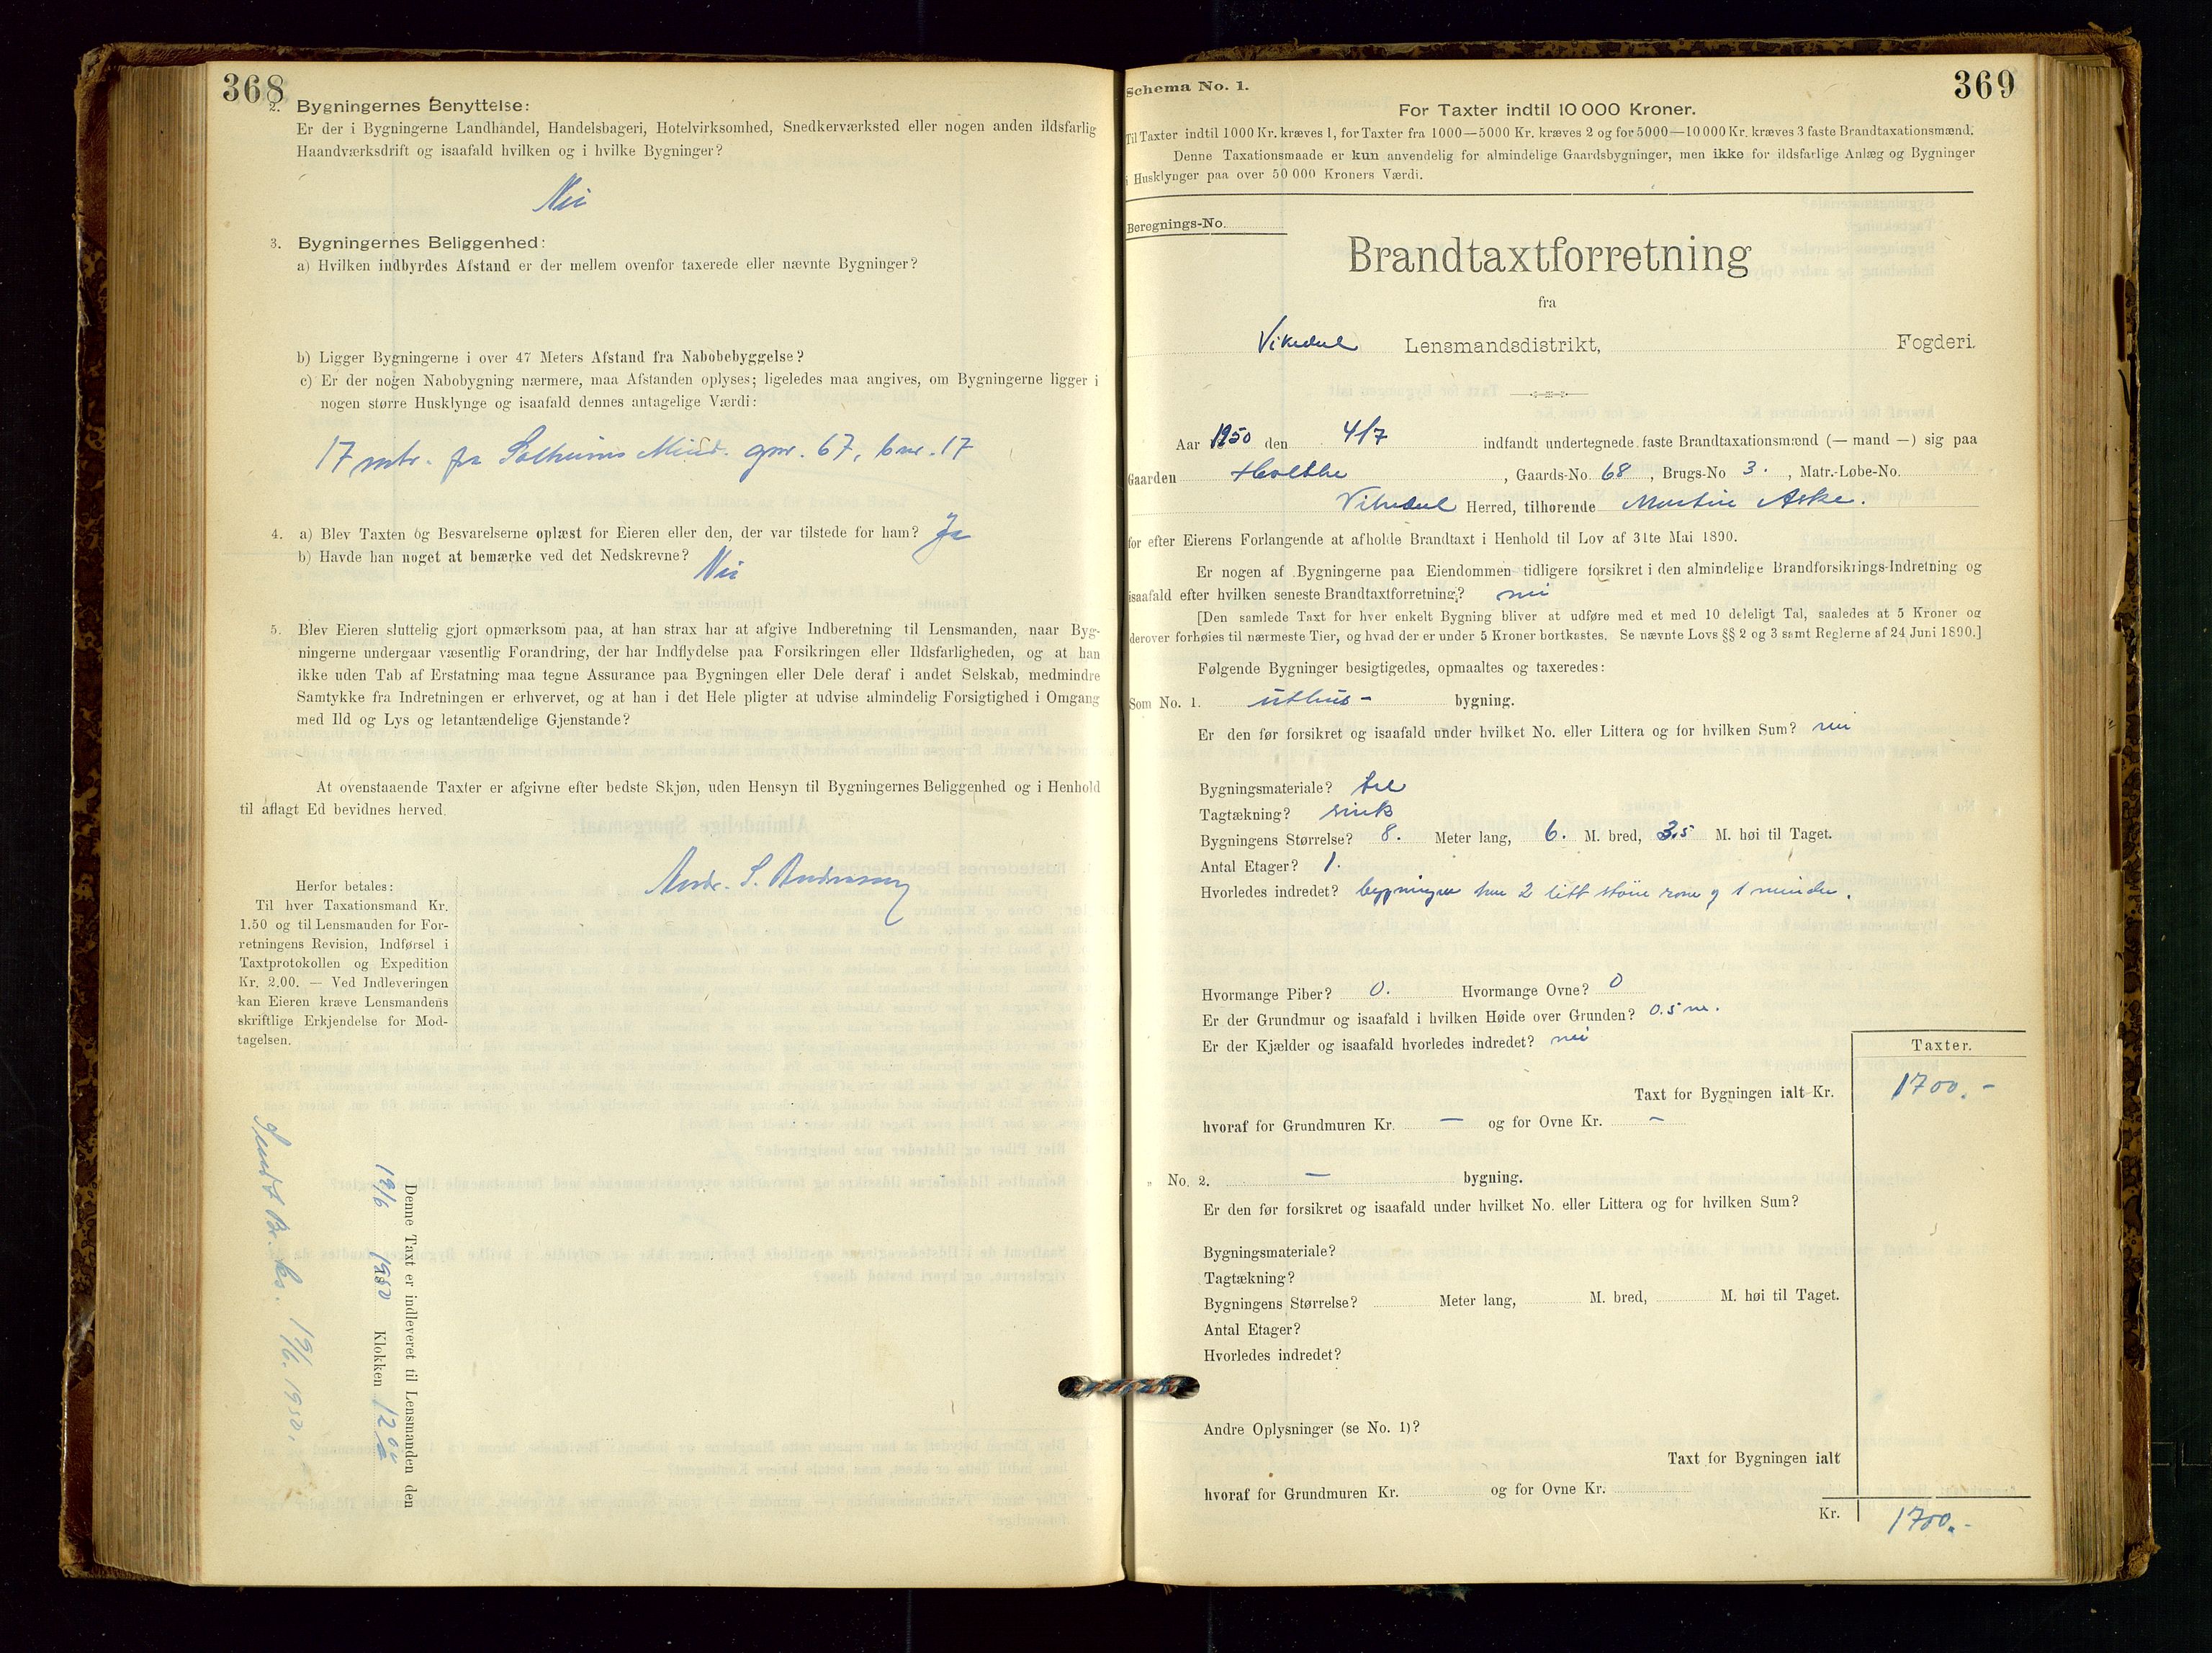 368
2. Bygningernes Benyttelse:
Er der i Bygningerne Landhandel, Handelsbageri, Hotelvirksomhed, Snedkerværksted eller nogen anden ildsfarlig
Haandværksdrift og isaafald hvilken og i hvilke Bygninger?
Nei
3. Bygningernes Beliggenhed:
a) Hvilken indbyrdes Afstand er der mellem ovenfor taxerede eller nævnte Bygninger?
b) Ligger Bygningerne i over 47 Meters Afstand fra Nabobebyggelse?
c) Er der nogen Nabobygning nærmere, maa Afstanden oplyses; ligeledes maa angives, om Bygningerne ligger i
nogen større Husklynge og isaafald dennes antagelige Værdi:
17 mtr. fra Solheims gnr. 67, bnr. 17
4. a) Blev Taxten og Besvarelserne oplæst for Eieren eller den, der var tilstede for ham? Ja
b) Havde han noget at bemærke ved det Nedskrevne? Nei
5. Blev Eieren sluttelig gjort opmærksom paa, at han strax har at afgive Indberetning til Lensmanden, naar Byg-
ningerne undergaar væsentlig Forandring, der har Indflydelse paa Forsikringen eller Ildsfarligheden, og at han
ikke uden Tab af Erstatning maa tegne Assurance paa Bygningen eller Dele deraf i andet Selskab, medmindre
Samtykke fra Indretningen er erhvervet, og at han i det Hele pligter at udvise almindelig Forsigtighed i Omgang
med Ild og Lys og letantændelige Gjenstande?
At ovenstaaende Taxter er afgivne efter bedste Skjøn, uden Hensyn til Bygningernes Beliggenhed og i Henhold
til aflagt Ed bevidnes herved.
Andr. S. Andreassen
Herfor betales:
Til hver Taxationsmand Kr.
1.50 og til Lensmanden for For-
retningens Revision, Indførsel i
Taxtprotokollen og Expedition
Kr. 2.00. — Ved Indleveringen
kan Eieren kræve Lensmandens
skriftlige Erkjendelse for Mod-
tagelsen.
Denne Taxt er indleveret til Lensmanden den
19/6 1950 Klokken 12 00
Sendt Br. ks. 19/6. 1950.
369
Schema No. 1.
For Taxter indtil 10 000 Kroner.
Til Taxter indtil 1000 Kr. kræves 1, for Taxter fra 1000—5000 Kr. kræves 2 og for 5000—10 000 Kr. kræves 3 faste Brandtaxationsmænd.
Denne Taxationsmaade er kun anvendelig for almindelige Gaardsbygninger, men ikke for ildsfarlige Anlæg og Bygninger
i Husklynger paa over 50 000 Kroners Værdi.
Beregnings-No.
Brandtaxtforretning
fra
Vikedal Lensmandsdistrikt, Fogderi.
Aar 1950 den 4/7 indfandt undertegnede faste Brandtaxationsmænd (— mand —) sig paa
Gaarden Holthe, Gaards-No. 68, Brugs-No 3., Matr.-Løbe-No.
Vikedal Herred, tilhørende Martin Aske.
for efter Eierens Forlangende at afholde Brandtaxt i Henhold til Lov af 31te Mai 1890.
Er nogen af Bygningerne paa Eiendommen tidligere forsikret i den almindelige Brandforsikrings-Indretning og
isaafald efter hvilken seneste Brandtaxtforretning? nei
[Den samlede Taxt for hver enkelt Bygning bliver at udføre med et med 10 deleligt Tal, saaledes at 5 Kroner og
derover forhøies til nærmeste Tier, og hvad der er under 5 Kroner bortkastes. Se nævnte Lovs §§ 2 og 3 samt Reglerne af 24 Juni 1890.]
Følgende Bygninger besigtigedes, opmaaltes og taxeredes:
Som No. 1. uthus - bygning.
Er den før forsikret og isaafald under hvilket No. eller Littera og for hvilken Sum? nei
Bygningsmateriale? tre
Tagtækning? sink
Bygningens Størrelse? 8. Meter lang, 6. M. bred, 3.5 M. høi til Taget.
Antal Etager? 1.
Hvorledes indredet? bygningen har 2 litt støire rom og 1 mindre.
Hvormange Piber? 0. Hvormange Ovne? 0
Er der Grundmur og isaafald i hvilken Høide over Grunden? 0.5 m.
Er der Kjælder og isaafald hvorledes indredet? nei
Taxter.
Taxt for Bygningen ialt Kr. 1700.-
hvoraf for Grundmuren Kr. — og for Ovne Kr. —
" No. 2. — bygning.
Er den før forsikret og isaafald under hvilket No. eller Littera og for hvilken Sum?
Bygningsmateriale?
Tagtækning?
Bygningens Størrelse? Meter lang, M. bred, M. høi til Taget.
Antal Etager?
Hvorledes indredet?
Andre Oplysninger (se No. 1)?
Taxt for Bygningen ialt
hvoraf for Grundmuren Kr. og for Ovne Kr.
Kr. 1700.-